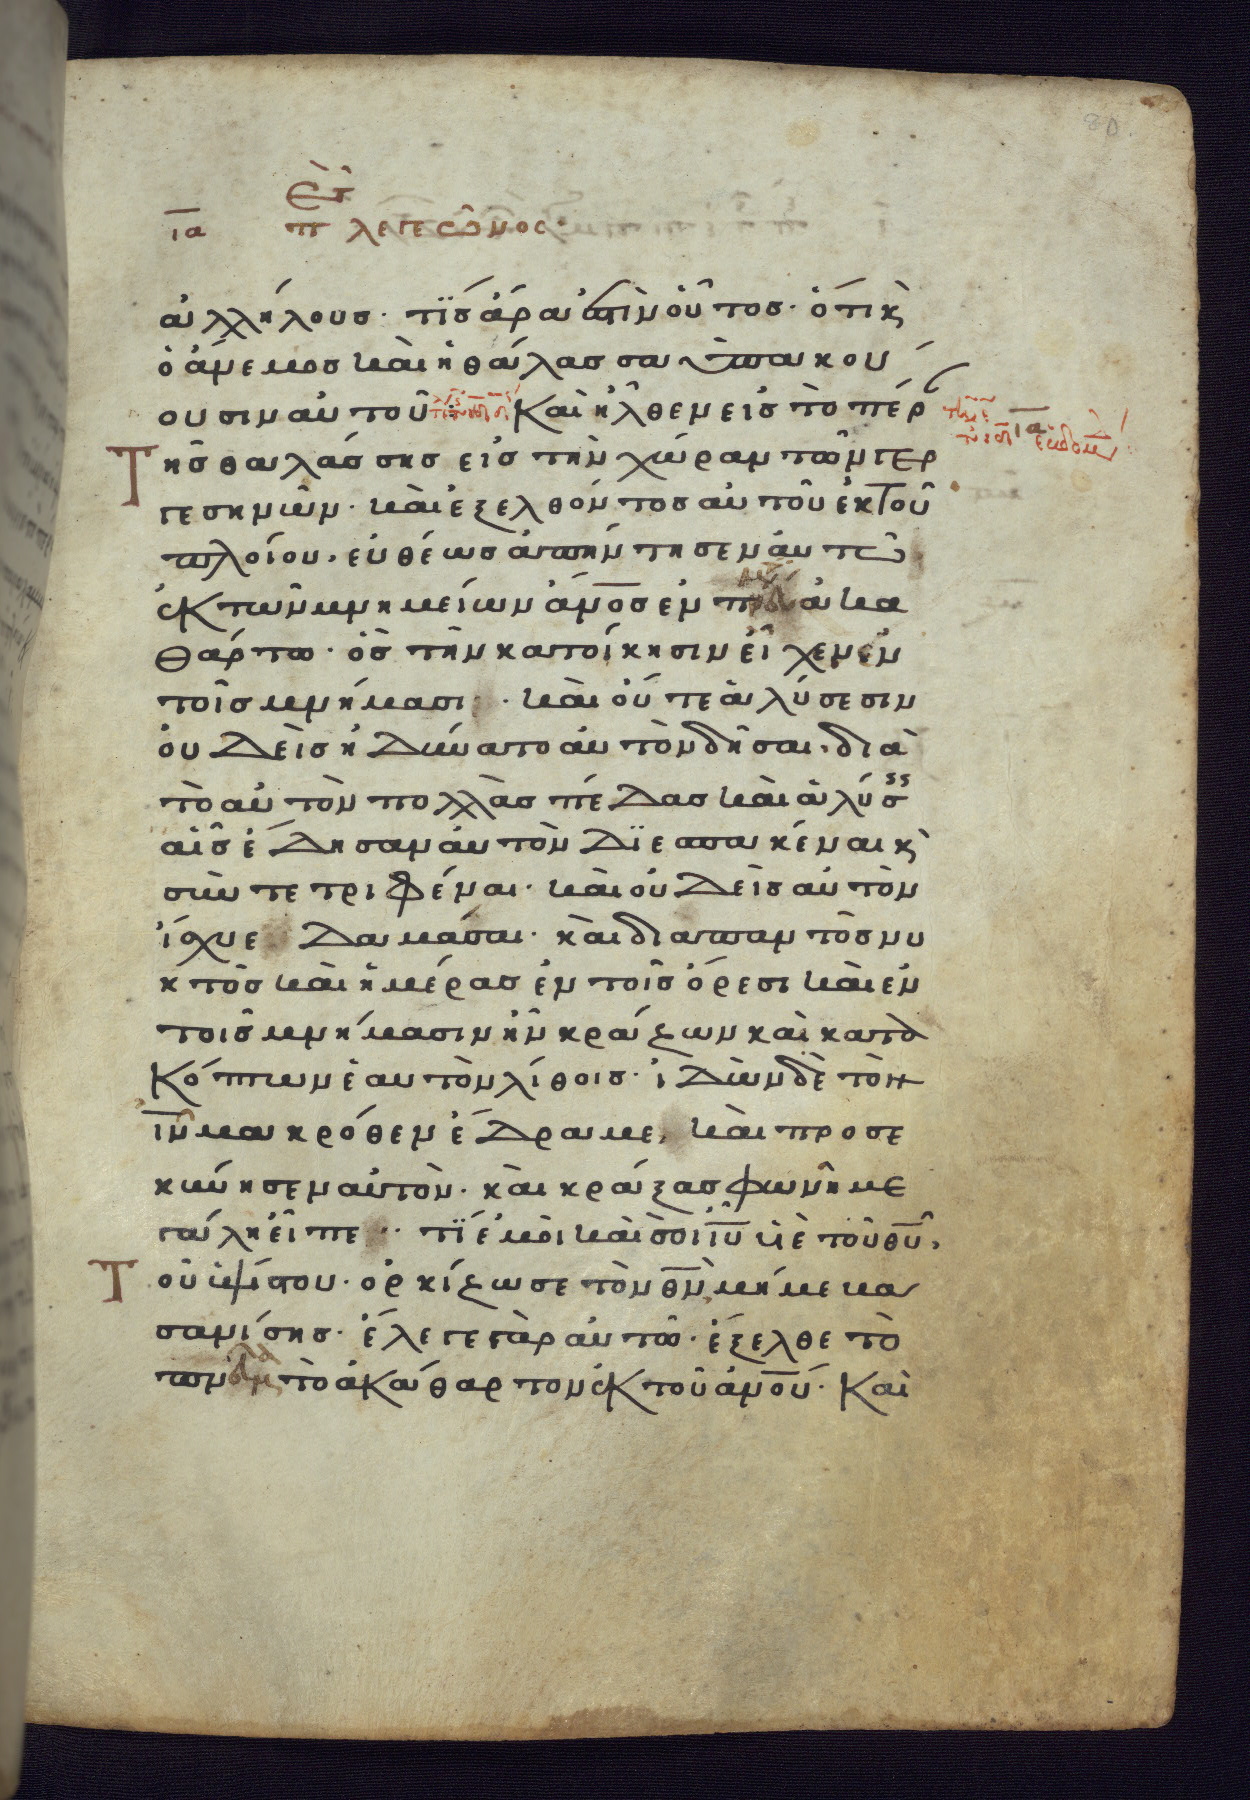 80
ια π λεγεωνος
ἀλλήλους· τίς ἄρα ἐστὶν οὗτος· ὅτι κ̀
ὁ ἄνεμος καὶ ἡ θάλασσα ὑπακού
ουσιν αὐτοῦ: Καὶ ἦλθεν εἰς τὸ πέρ
ια
Τῆς θαλάσσης εἰς τὴν χώραν τῶν γερ
γεσηνῶν· καὶ ἐξελθόντος αὐτοῦ ἐκ τοῦ
πλοίου, εὐθέως ἀπήντησεν αὐτῶ
ἐκ τῶν μνημείων ἄνο̅ς ἐν ἀκα
θάρτω· ὃς τὴν κατοίκησιν εἶχεν ἐν
τοῖς μνήμασι· καὶ οὔτε ἀλύσεσιν
οὐδεὶς ἠδύνατο αὐτὸν δῆσαι· διὰ
τὸ αὐτὸν πολλὰς πέδας καὶ ἀλύσ
αἷς ἔδησαν αὐτὸν διεσπακέναι κ̀
συντετριφέναι· καὶ οὐδεὶς αὐτὸν
ἴσχυε δαμάσαι· καὶ διαπαντὸς νυ
κτὸς καὶ ἡμέρας ἐν τοῖς ὄρεσι καὶ ἐν
τοῖς μνήμασιν ἦν κράζων καὶ κατα
κόπτων ἑαυτὸν λίθοις· ἰδὼν δὲ τὸν
ι̅ν μακρόθεν ἔδραμε, καὶ προσε
κύνησεν αὐτὸν· καὶ κράξας φωνῆ με
γάλη εἶπε· τί ἐμοὶ καὶ σοὶ ι̅υ υἱὲ τοῦ θ̅υ,
Τοῦ ὑψίστου· ὁρκίζω σε τὸν θ̅ν μή με βα
σανίσης· ἔλεγε γὰρ αὐτῶ· ἔξελθε τὸ
πν̅α τὸ ἀκάθαρτον ἐκ τοῦ ἀνο̅υ· Καὶ